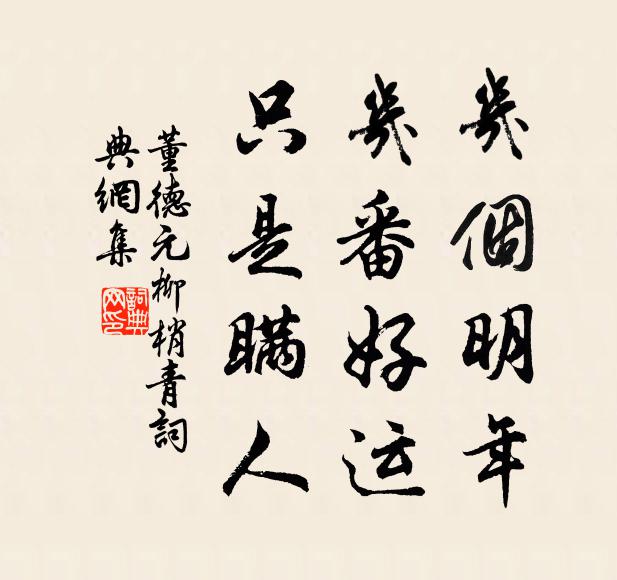 幾個明年
幾番好运
只是瞞人
董德元柳梢青詞
典網集
詞典网印